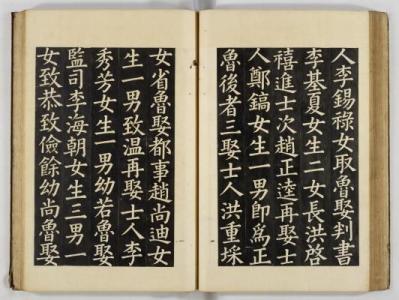 人李錫祿女取魯娶判書
李基夏女生二女長洪啓
禧進士次趙正逵再娶士
人鄭鎬女生一男即爲正
魯後者三娶士人洪重埰
女省魯娶都事趙尚迪女
生一男致温再娶士人李
秀芳女生一男幼若魯娶
監司李海朝女生三男一
女致恭致儉餘幼尚魯娶